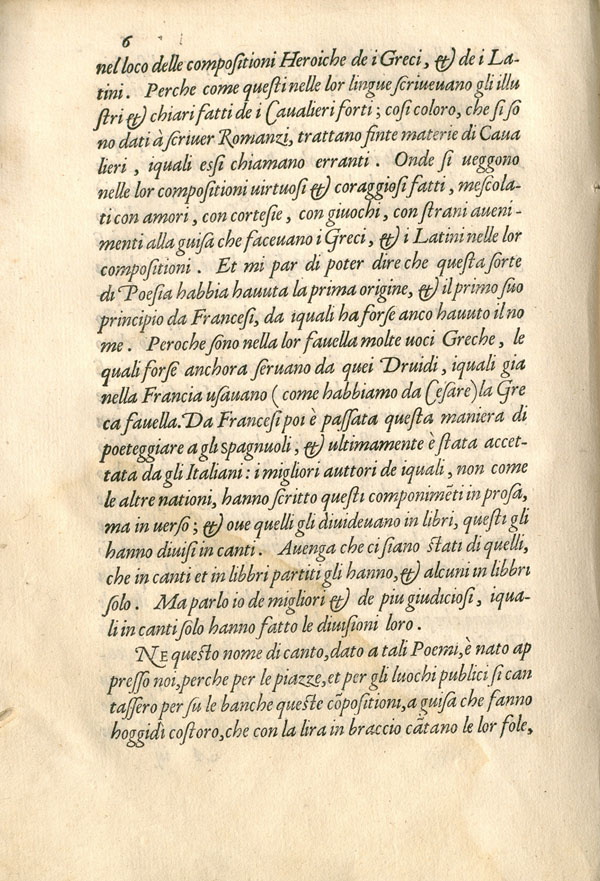 6
nel loco delle compositioni Heroiche de i Greci, & de i La-
tini. Perche come questi nelle lor lingue scriueuano gli illu
stri & chiari fatti de i Caualieri forti; cosi coloro, che si so
no dati à scriuer Romanzi, trattano finte materie di Caua
lieri, iquali essi chiamano erranti. Onde si ueggono
nelle lor compositioni uirtuosi & coraggiosi fatti, mescola-
ti con amori, con cortesie, con giuochi, con strani aueni-
menti alla guisa che faceuano i Greci, & i Latini nelle lor
compositioni. Et mi par di poter dire che questa sorte
di Poesia habbia hauuta la prima origine, & il primo suo
principio da Francesi, da iquali ha forse anco hauuto il no
me. Peroche sono nella lor fauella molte uoci Greche, le
quali forse anchora seruano da quei Druidi, iquali gia
nella Francia usauano (come habbiamo da Cesare) la Gre
ca fauella. Da Francesi poi è passata questa maniera di
poeteggiare a gli spagnuoli, & ultimamente è stata accet-
tata da gli Italiani: i migliori auttori de iquali, non come
le altre nationi, hanno scritto questi componimẽti in prosa,
ma in uerso; & oue quelli gli diuideuano in libri, questi gli
hanno diuisi in canti. Auenga che ci siano stati di quelli,
che in canti et in libbri partiti gli hanno, & alcuni in libbri
solo. Ma parlo io de migliori & de piu giudiciosi, iqua-
li in canti solo hanno fatto le diuisioni loro.
NE questo nome di canto, dato a tali Poemi, è nato ap
presso noi, perche per le piazze, et per gli luochi publici si can
tassero per su le banche queste cõpositioni, a guisa che fanno
hoggidì costoro, che con la lira in braccio cãtano le lor fole,